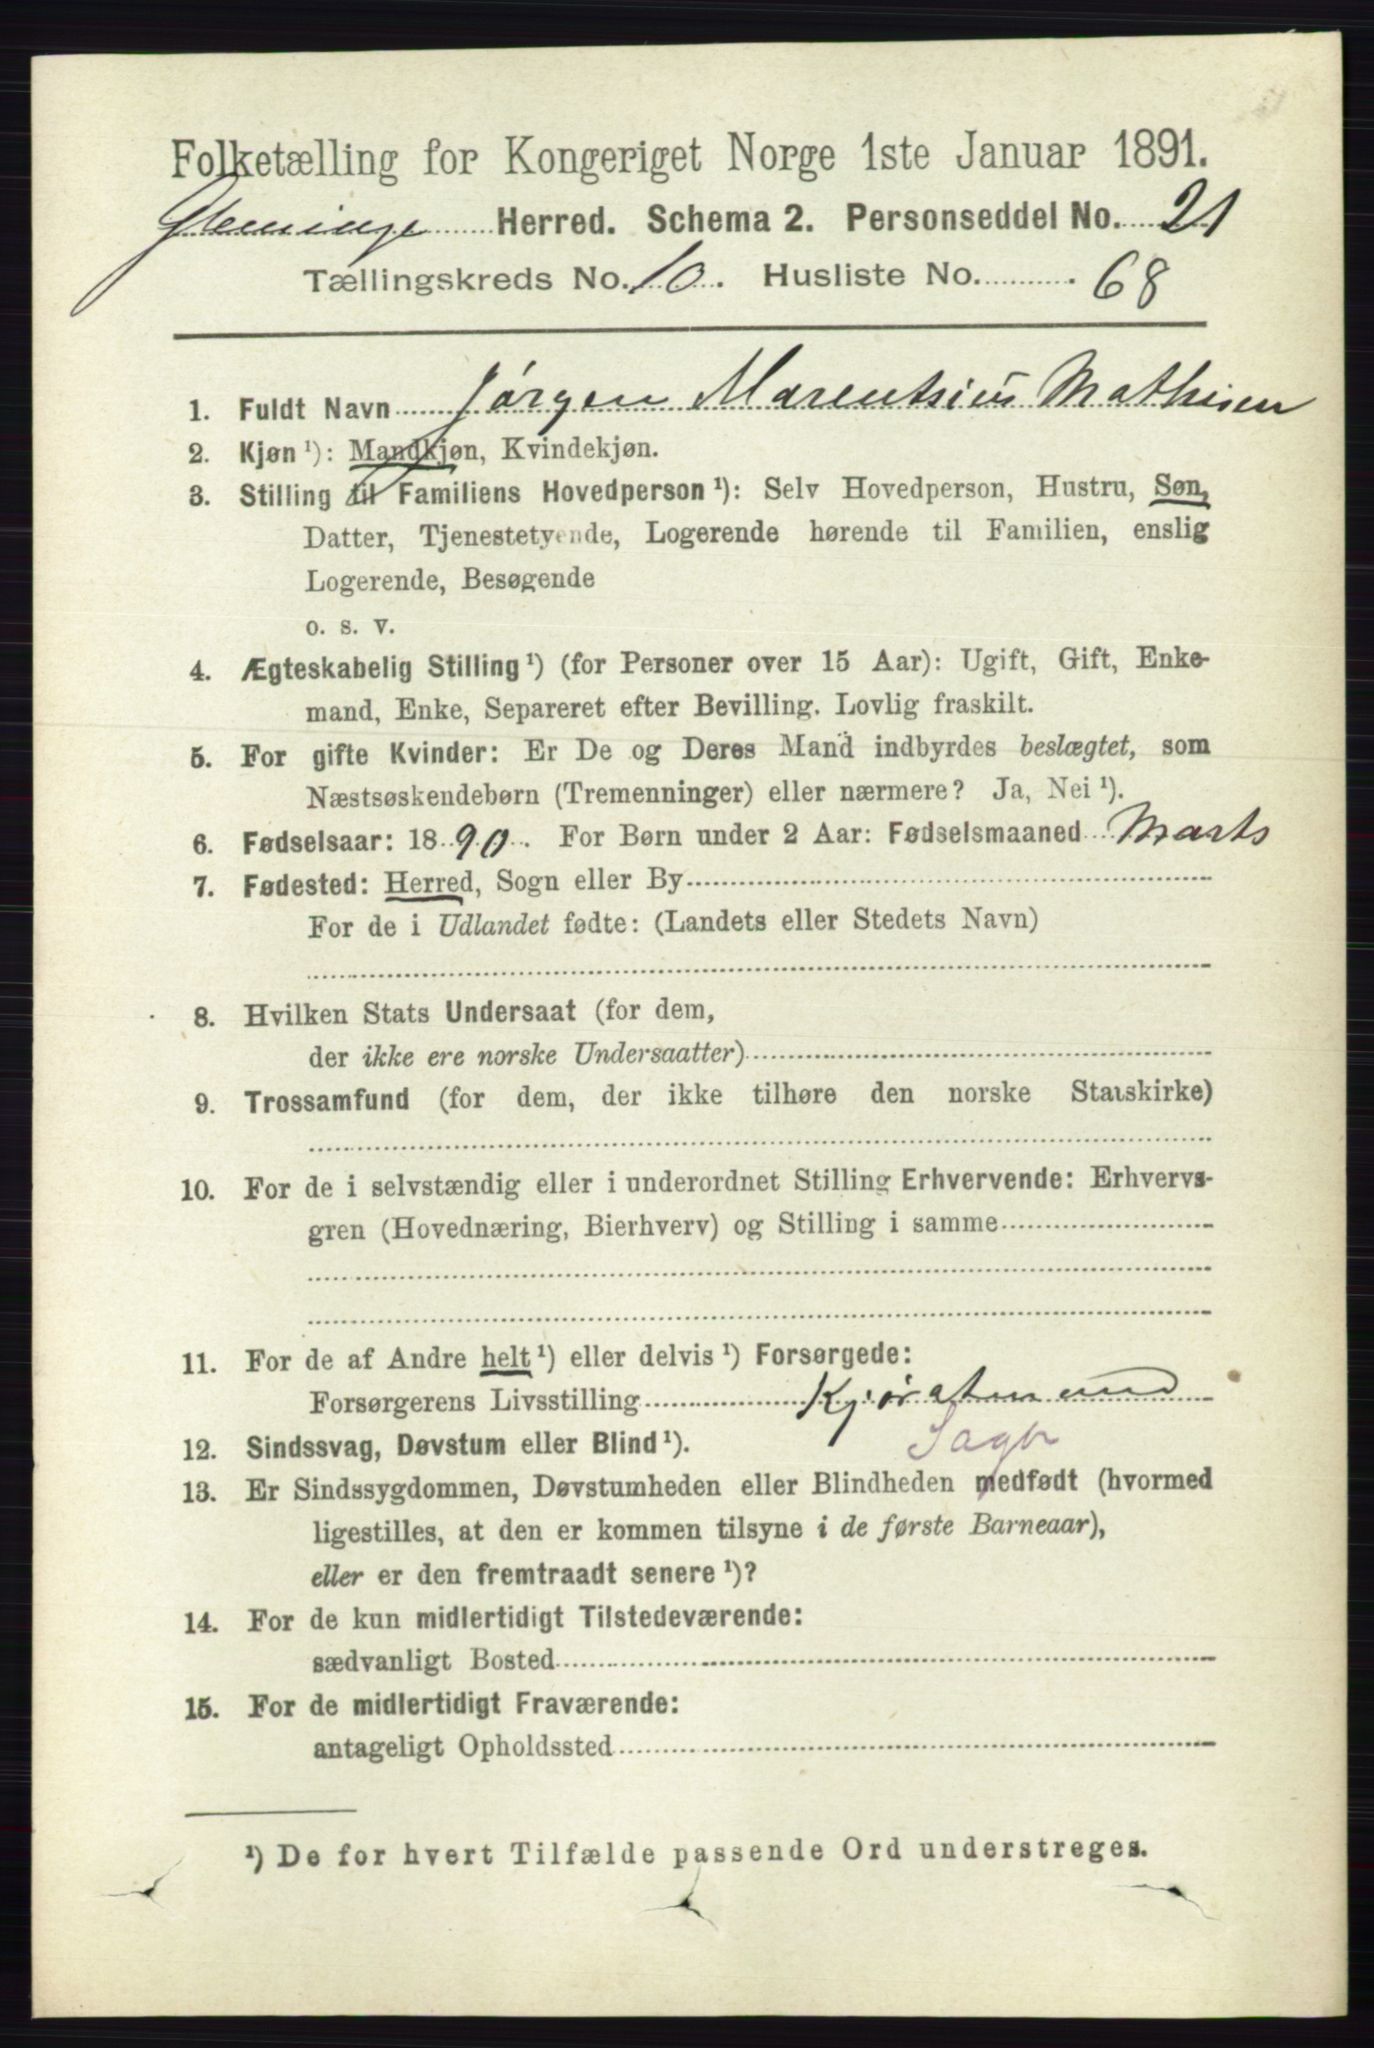 Folketælling for Kongeriget Norge 1ste Januar 1891.
Glemminge Herred. Schema 2. Personseddel No. 21
Tællingskreds No. 10. Husliste No. 68
1. Fuldt Navn Jørgen Marentsius Mathisen
2. Kjøn ¹): Mandkjøn, Kvindekjøn.
3. Stilling til Familiens Hovedperson ¹): Selv Hovedperson, Hustru, Søn,
Datter, Tjenestetyende, Logerende hørende til Familien, enslig
Logerende, Besøgende
o. s. v.
4. Ægteskabelig Stilling ¹) (for Personer over 15 Aar): Ugift, Gift, Enke-
mand, Enke, Separeret efter Bevilling. Lovlig fraskilt.
5. For gifte Kvinder: Er De og Deres Mand indbyrdes beslægtet, som
Næstsøskendebørn (Tremenninger) eller nærmere? Ja, Nei ¹).
6. Fødselsaar: 1890. For Børn under 2 Aar: Fødselsmaaned Marts
7. Fødested: Herred, Sogn eller By
For de i Udlandet fødte: (Landets eller Stedets Navn)
8. Hvilken Stats Undersaat (for dem,
der ikke ere norske Undersaatter)
9. Trossamfund (for dem, der ikke tilhøre den norske Statskirke)
10. For de i selvstændig eller i underordnet Stilling Erhvervende: Erhvervs-
gren (Hovednæring, Bierhverv) og Stilling i samme
11. For de af Andre helt ¹) eller delvis ¹) Forsørgede:
Forsørgerens Livsstilling
12. Sindssvag, Døvstum eller Blind ¹).
13. Er Sindssygdommen, Døvstumheden eller Blindheden medfødt (hvormed
ligestilles, at den er kommen tilsyne i de første Barneaar),
eller er den fremtraadt senere ¹)?
14. For de kun midlertidigt Tilstedeværende:
sædvanligt Bosted
15. For de midlertidigt Fraværende:
antageligt Opholdssted
¹) De for hvert Tilfælde passende Ord understreges.